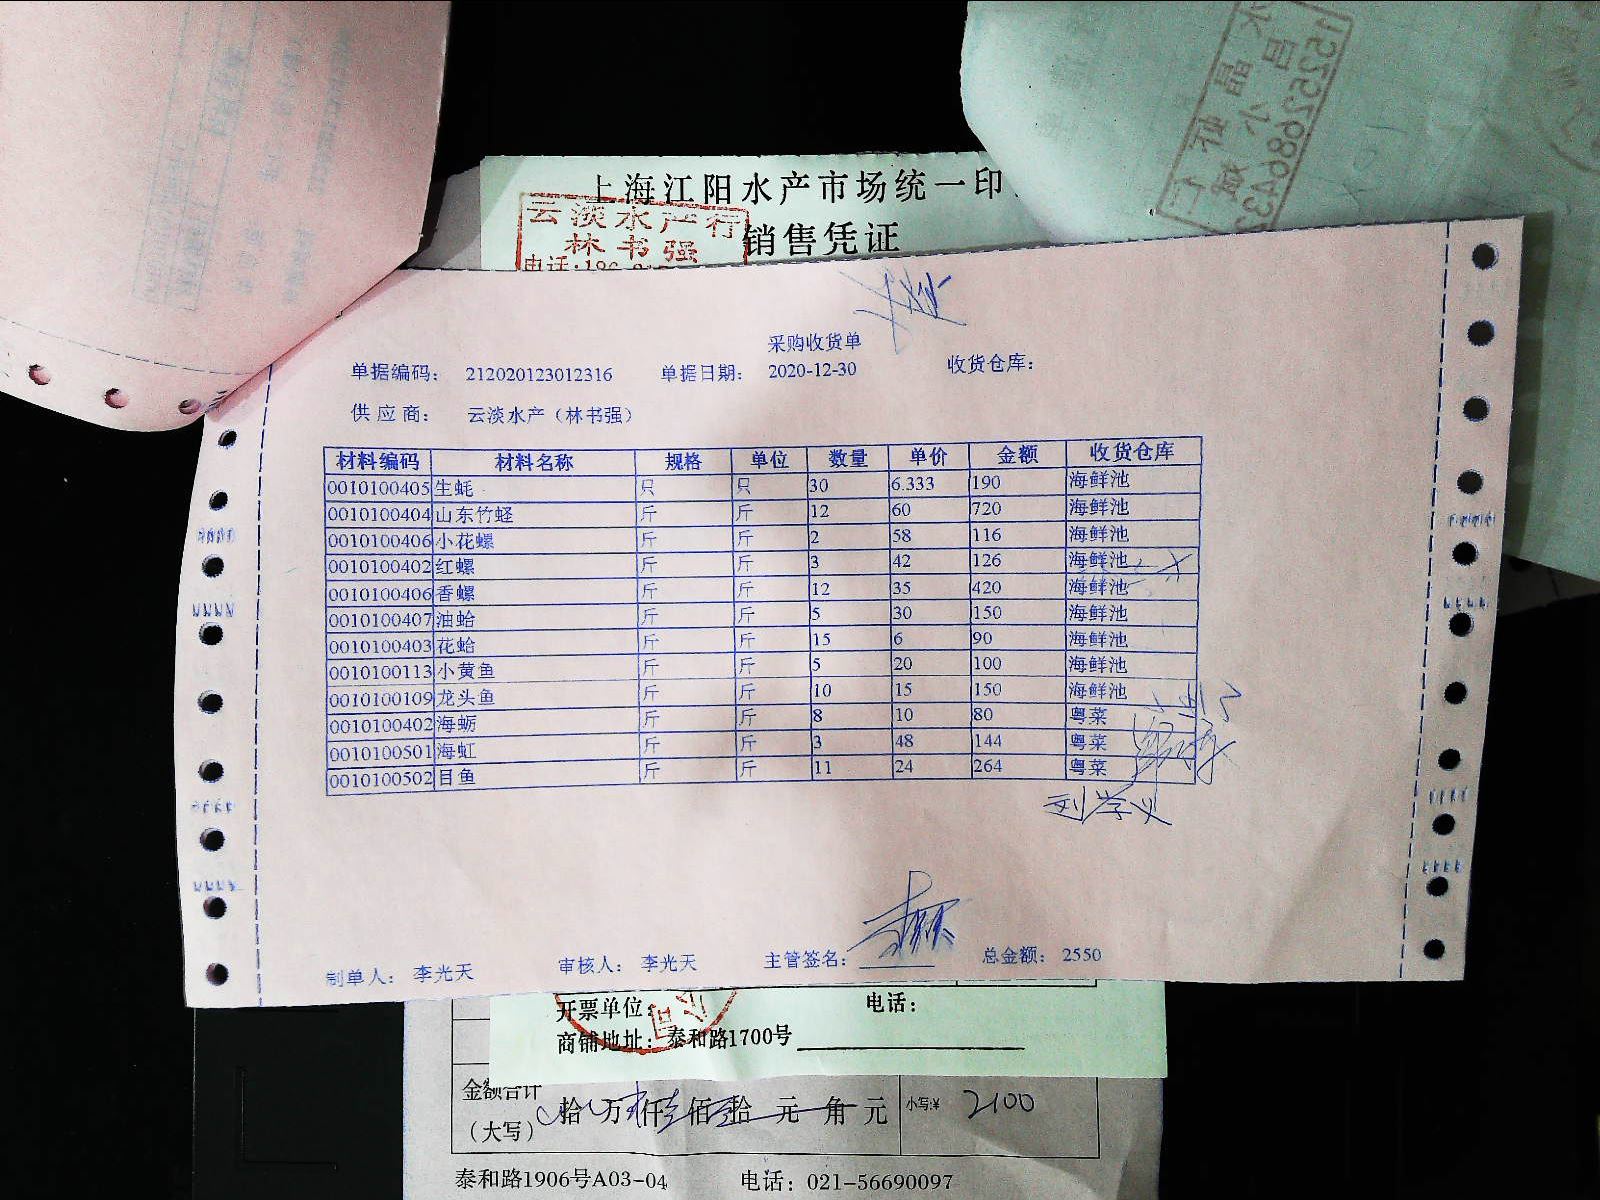 15252686433
上海江阳水产市场统一印
云淡水产行
林书强
电话:186
销售凭证
采购收货单
单据编码: 212020123012316 单据日期: 2020-12-30 收货仓库:
供应商: 云淡水产(林书强)
材料编码 材料名称 规格 单位 数量 单价 金额 收货仓库
0010100405 生蚝 只 只 30 6.333 190 海鲜池
0010100404 山东竹蛏 斤 斤 12 60 720 海鲜池
0010100406 小花螺 斤 斤 2 58 116 海鲜池
0010100402 红螺 斤 斤 3 42 126 海鲜池
0010100406 香螺 斤 斤 12 35 420 海鲜池
0010100407 油蛤 斤 斤 5 30 150 海鲜池
0010100403 花蛤 斤 斤 15 6 90 海鲜池
0010100113 小黄鱼 斤 斤 5 20 100 海鲜池
0010100109 龙头鱼 斤 斤 10 15 150 海鲜池
0010100402 海蛎 斤 斤 8 10 80 粤菜
0010100501 海虹 斤 斤 3 48 144 粤菜
0010100502 目鱼 斤 斤 11 24 264 粤菜
刘学义
制单人: 李光天 审核人: 李光天 主管签名: 总金额: 2550
公司
开票单位: 电话:
商铺地址: 泰和路1700号
金额合计
(大写) 拾 万 仟 佰 拾 元 角 元 小写:¥ 2100
泰和路1906号A03-04 电话: 021-56690097